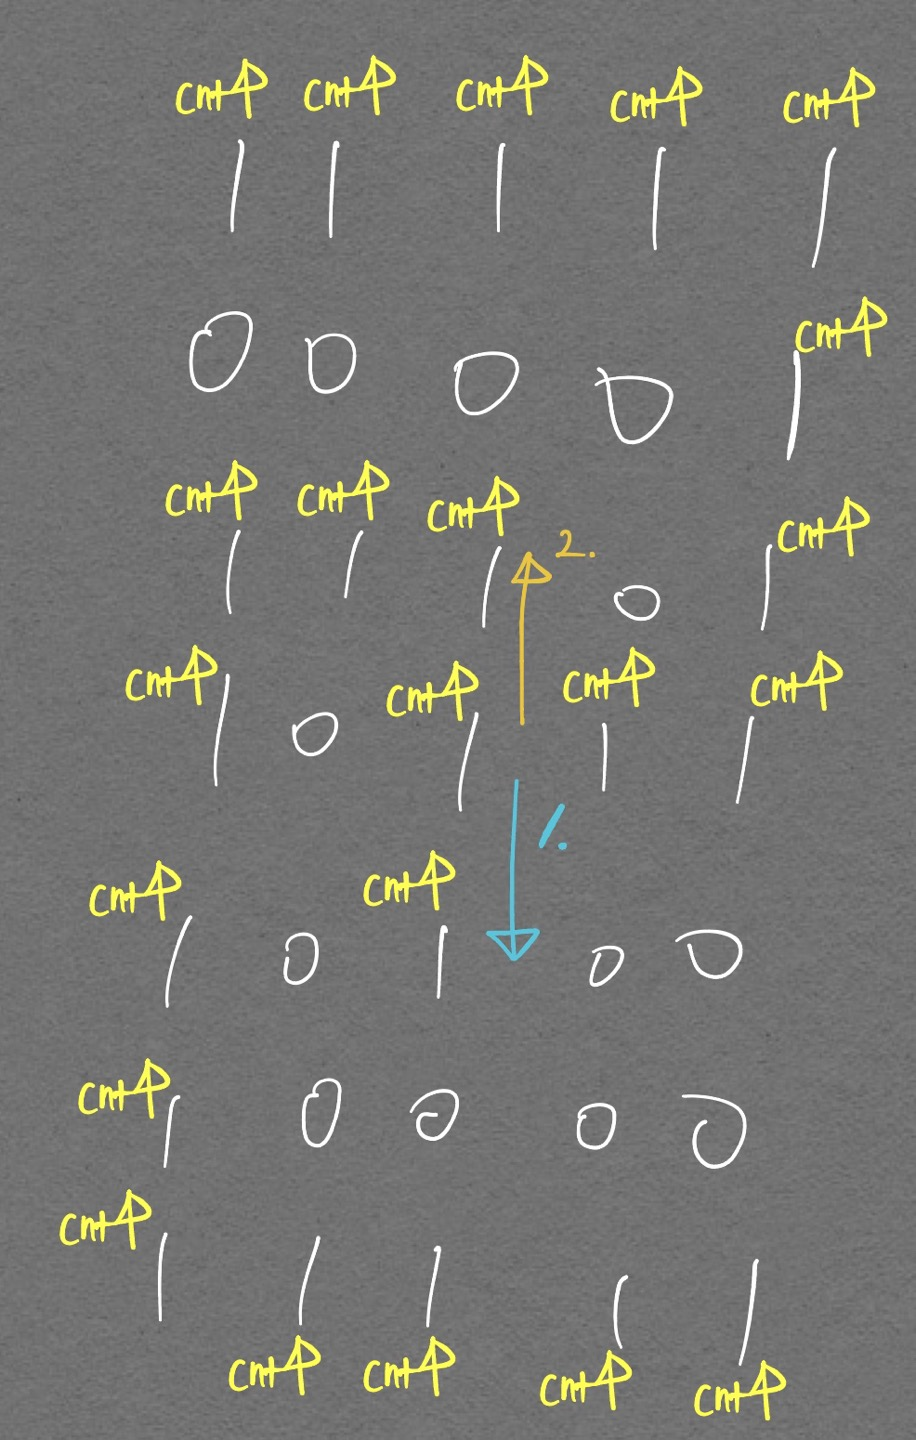 cnt↑ cnt↑ cnt↑ cnt↑ cnt↑
1 1 1 1 1
cnt↑
0 0 0 0 1
cnt↑ cnt↑ cnt↑ cnt↑
2.
1 1 1 0 1
cnt↑ cnt↑ cnt↑ cnt↑
1 0 1 1 1
1.
cnt↑ cnt↑
1 0 1 0 0
cnt↑
1 0 0 0 0
cnt↑
1 1 1 1 1
cnt↑ cnt↑ cnt↑ cnt↑